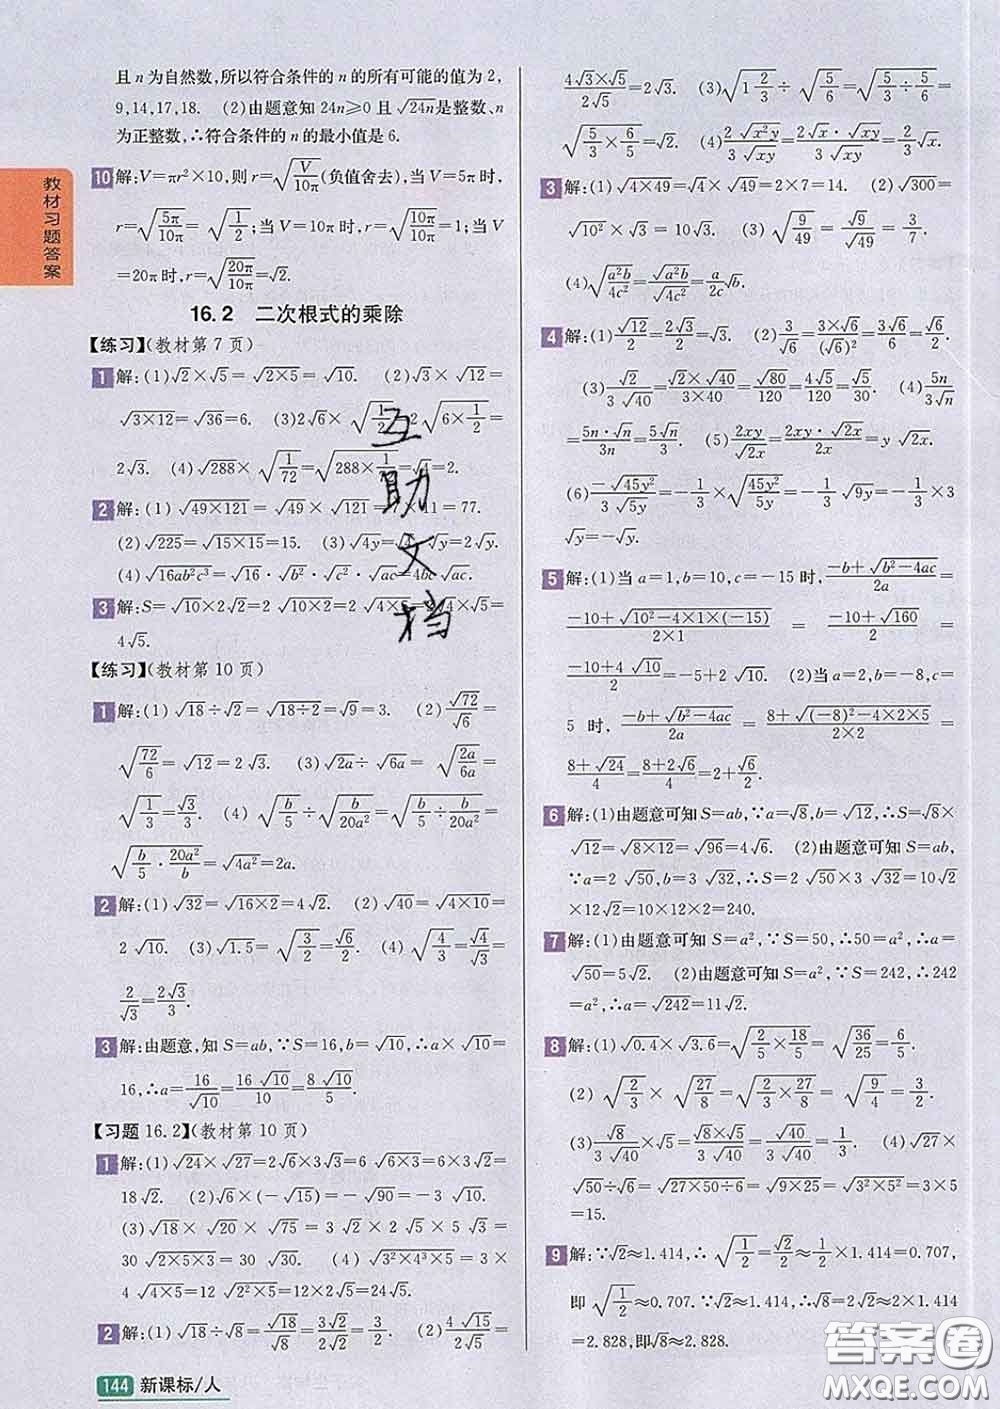 且n为自然数,所以符合条件的n的所有可能的值为2,
9,14,17,18. (2)由题意知24n≥0且√24n是整数、n
为正整数,∴符合条件的n的最小值是6.
教材习题答案
10 解:V=πr²×10,则r=√(V/10π)(负值舍去),当V=5π时,
r=√(5π/10π)=√(1/2);当V=10π时,r=√(10π/10π)=1;当V
=20π时,r=√(20π/10π)=√2.
16.2 二次根式的乘除
【练习】(教材第7页)
1 解:(1)√2×√5=√(2×5)=√10. (2)√3×√12=
√(3×12)=√36=6. (3)2√6×√(1/2)=2√(6×1/2)=
2√3. (4)√288×√(1/72)=√(288×1/72)=√4=2.
2 解:(1)√(49×121)=√49×√121=7×11=77.
(2)√225=√(15×15)=15. (3)√4y=√4·√y=2√y.
(4)√(16ab²c³)=√16·√b²·√c²·√ac=4bc√ac.
3 解:S=√10×2√2=2√(4×5)=2√4×√5=
4√5.
互助文档
【练习】(教材第10页)
1 解:(1)√18÷√2=√(18÷2)=√9=3. (2)√72/√6=
√(72/6)=√12=2√3. (3)√2a÷√6a=√(2a/6a)=
√(1/3)=√3/3. (4)√(b/5)÷√(b/20a²)=√(b/5)÷√(b/20a²)=
√(b/5·20a²/b)=√4a²=2a.
2 解:(1)√32=√(16×2)=4√2. (2)√40=√(4×10)=
2√10. (3)√1.5=√(3/2)=√6/2. (4)√(4/3)=√4/√3=
2/√3=2√3/3.
3 解:由题意,知S=ab,∵S=16,b=√10,∴a×√10=
16,∴a=16/√10=16√10/10=8√10/5.
【习题16.2】(教材第10页)
1 解:(1)√24×√27=2√6×3√3=6√(6×3)=6×3√2=
18√2. (2)√6×(-√15)=-√(6×15)=-3√10.
(3)√18×√20×√75=3√2×2√5×5√3=
30√(2×5×3)=30√30. (4)√(3²×4³×5)=3×
4√(4×5)=12√(2²×5)=12×2√5=24√5.
2 解:(1)√18÷√8=√18/√8=3√2/2√2=3/2. (2)4√15/2√5=
144 新课标/人
4√3×√5/2√5=2√3. (3)√(1 2/3)÷√(5/6)=√(5/3)÷√(5/6)=
√(5/3×6/5)=√2. (4)2√x²y/3√xy=2√x·√xy/3√xy=2/3√x.
3 解:(1)√(4×49)=√4×√49=2×7=14. (2)√300=
√10²×√3=10√3. (3)√(9/49)=√9/√49=3/7.
(4)√(a²b/4c²)=√a²b/√4c²=a/2c√b.
4 解:(1)√12/2=2√3/2=√3. (2)3/√6=3×√6/(√6)²=3√6/6=√6/2.
(3)√2/3√40=√2×√40/3×40=√80/120=4√5/120=√5/30. (4)5n/3√n
=5n·√n/3n=5√n/3. (5)2xy/√2x=2xy·√2x/2x=y√2x.
(6)-√45y²/3√5y=-1/3×√(45y²/5y)=-1/3√9y=-1/3×3
√y=-√y.
5 解:(1)当a=1,b=10,c=-15时,(-b+√(b²-4ac))/2a=
(-10+√(10²-4×1×(-15)))/2×1=(-10+√160)/2=
(-10+4√10)/2=-5+2√10. (2)当a=2,b=-8,c=
5时,(-b+√(b²-4ac))/2a=(8+√((-8)²-4×2×5))/2×2=
(8+√24)/4=(8+2√6)/4=2+√6/2.
6 解:(1)由题意可知S=ab,∵a=√8,b=√12,∴S=√8×
√12=√(8×12)=√96=4√6. (2)由题意可知S=ab,
∵a=2√50,b=3√32,∴S=2√50×3√32=10√2
×12√2=10×12×2=240.
7 解:(1)由题意可知S=a²,∵S=50,∴50=a²,∴a=
√50=5√2. (2)由题意可知S=a²,∵S=242,∴242
=a²,∴a=√242=11√2.
8 解:(1)√0.4×√3.6=√(2/5×18/5)=√(36/25)=6/5.
(2)√(2/3)×√(27/8)=√(2/3×27/8)=√(9/4)=3/2.
(3)√8/3√40×√5=√8×√5/3√40=√40/3√40=1/3. (4)√27×
√50÷√6=√(27×50÷6)=√(9×25)=√(3²×5²)=3×5
=15.
9 解:∵√2≈1.414,∴√(1/2)=√2/2≈1/2×1.414=0.707,
即√(1/2)≈0.707.∵√2≈1.414,∴√8=2√2≈2×1.414
=2.828,即√8≈2.828.
答案圈
MXQE.COM